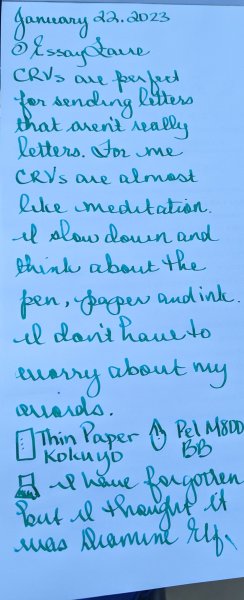 January 22. 2023
@EssayFaire
CRVs are perfect
for sending letters
that aren't really
letters. For me
CRVs are almost
like meditation.
I slow down and
think about the
pen, paper and ink.
I don't have to
worry about my
words.
Thin Paper Pel M800
Kokuyo BB
I have forgotten
but I thought it
was Diamine Elf.